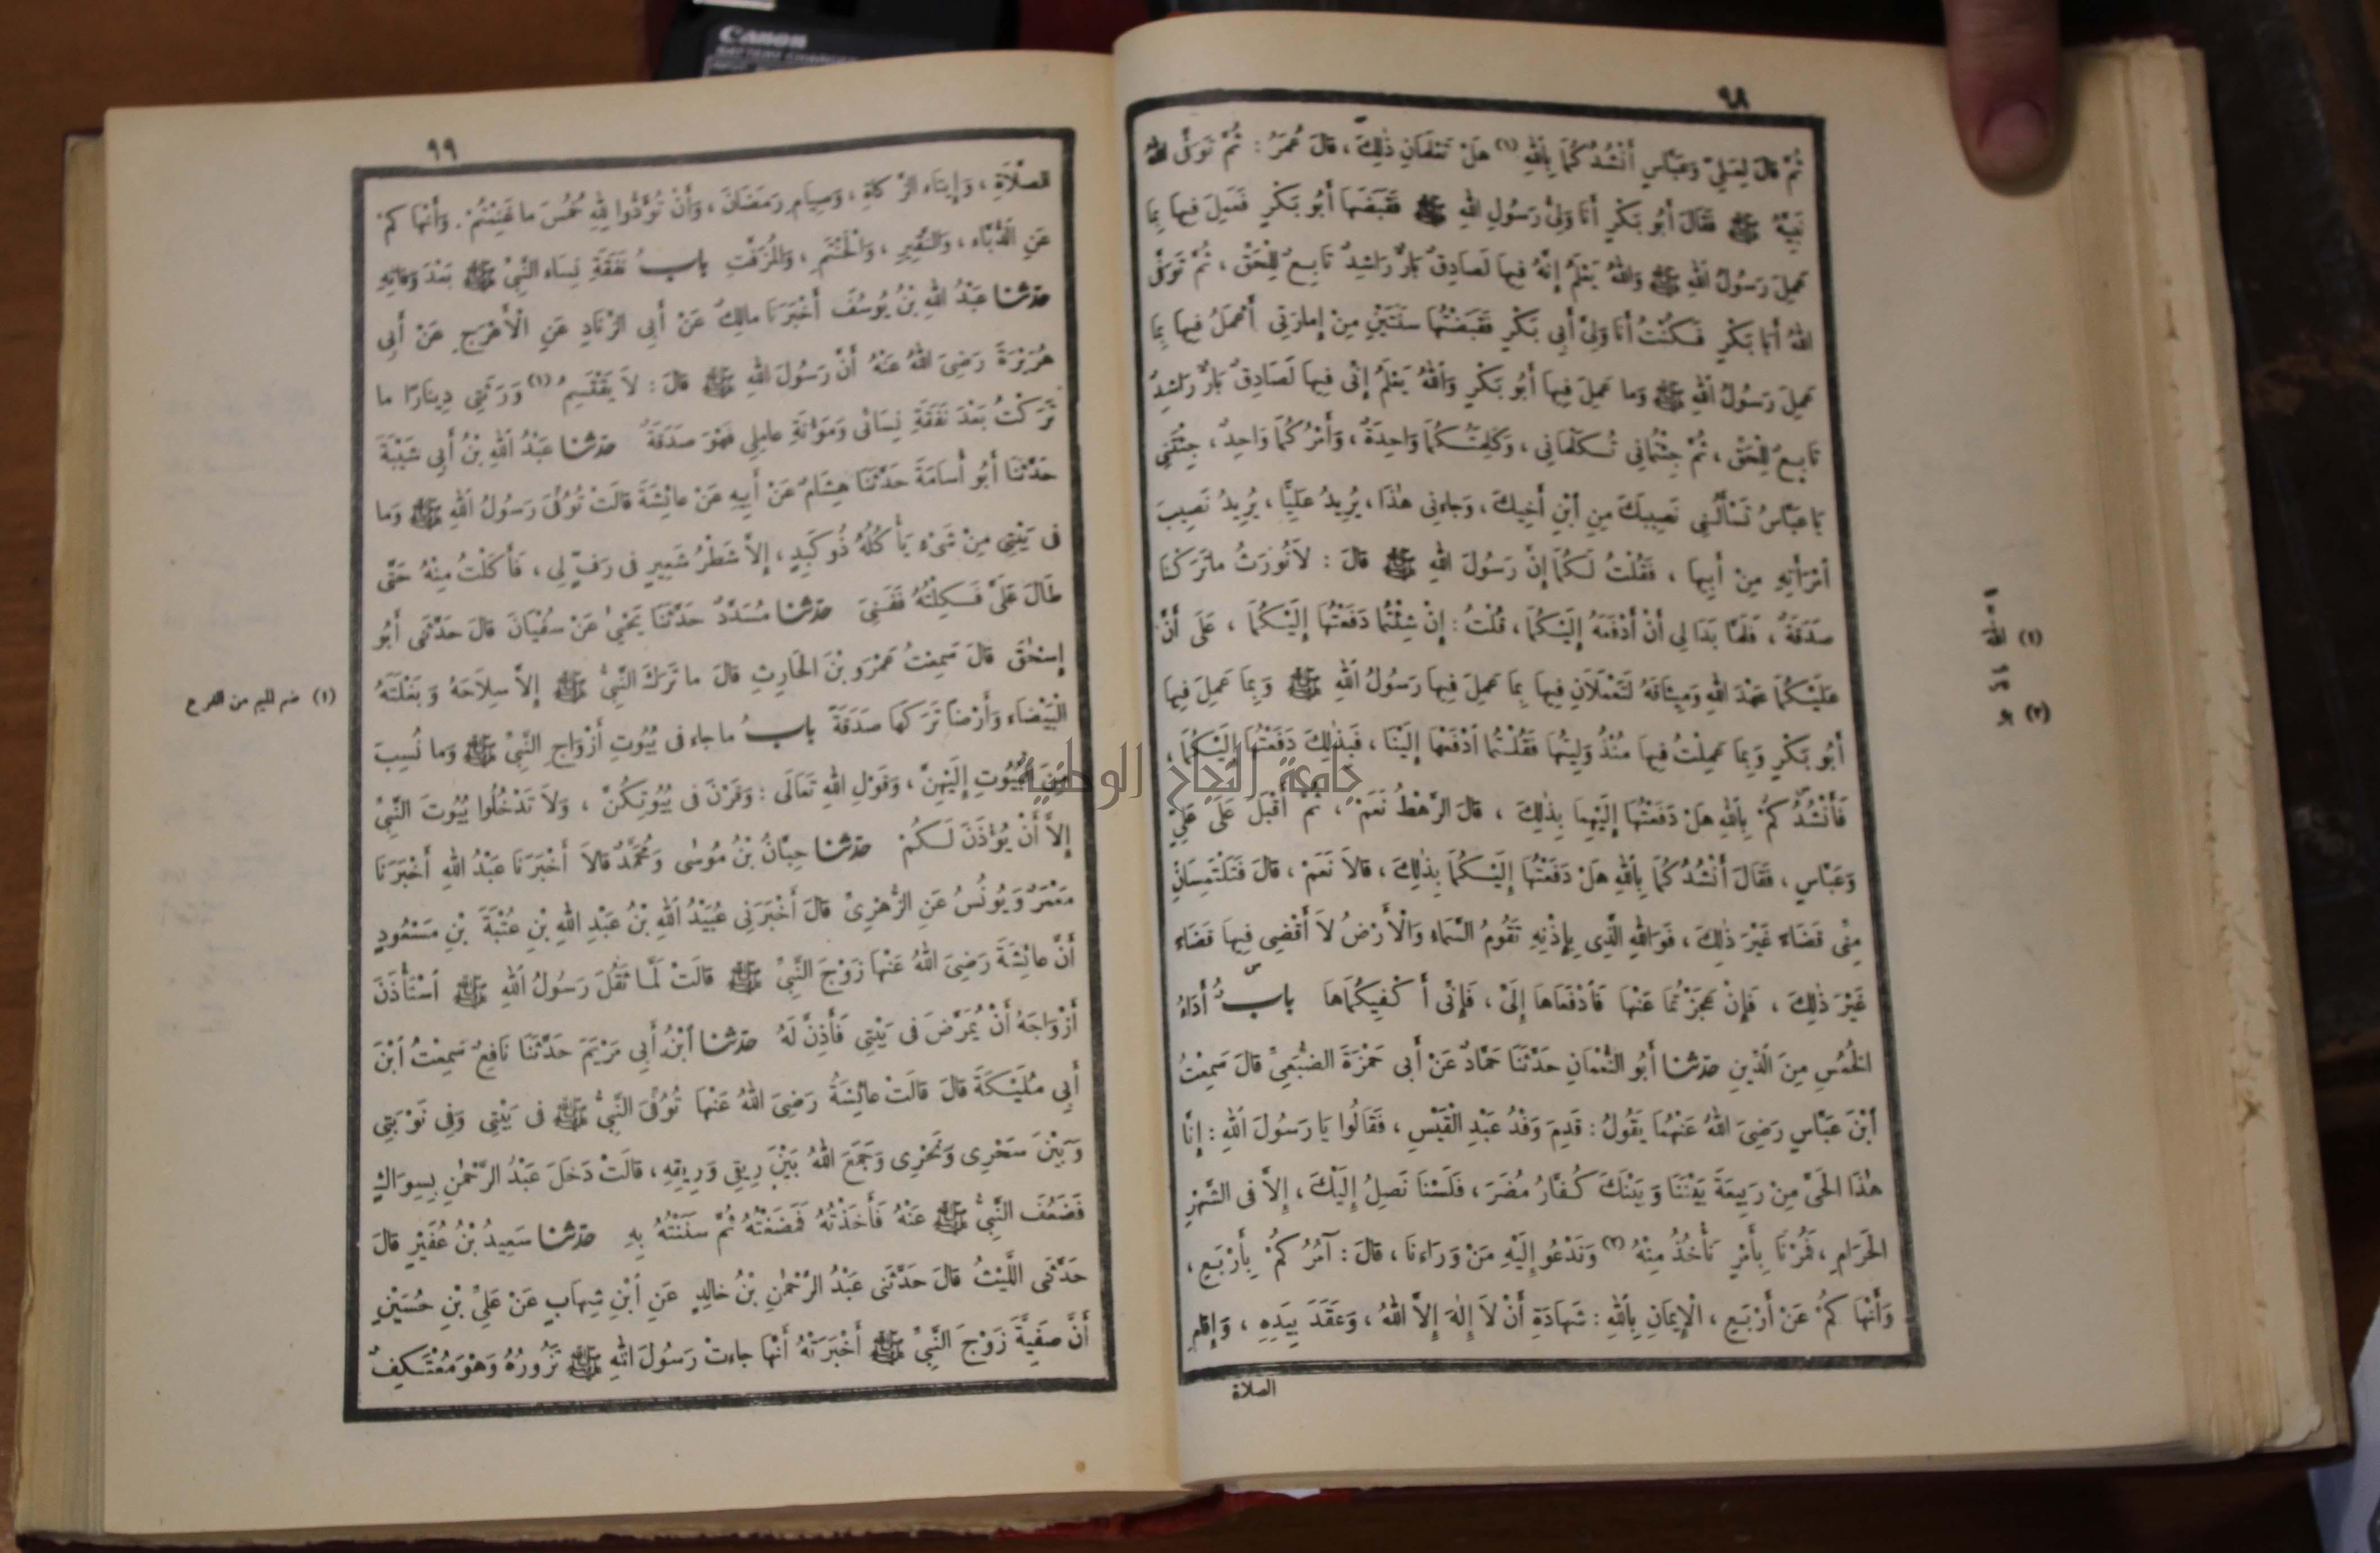 ٩٨
ثُمَّ قالَ لِعَلِيٍّ وَعَبَّاسٍ أَنْشُدُكُمَا بِاللهِ (١) هَلْ تَعْلَمَانِ ذٰلِكَ ، قالَ عُمَرُ : ثُمَّ تَوَفَّى اللهُ
نَبِيَّهُ ﷺ فَقَالَ أَبُو بَكْرٍ أَنَا وَلِيُّ رَسُولِ اللهِ ﷺ فَقَبَضَهَا أَبُو بَكْرٍ فَعَمِلَ فِيهَا بِمَا
عَمِلَ رَسُولُ اللهِ ﷺ وَاللهُ يَعْلَمُ إِنَّهُ فِيهَا لَصَادِقٌ بَارٌّ رَاشِدٌ تَابِعٌ لِلْحَقِّ ، ثُمَّ تَوَفَّى
اللهُ أَبَا بَكْرٍ فَكُنْتُ أَنَا وَلِيَّ أَبِي بَكْرٍ فَقَبَضْتُهَا سَنَتَيْنِ مِنْ إِمارَتِي أَعْمَلُ فِيهَا بِمَا
عَمِلَ رَسُولُ اللهِ ﷺ وَما عَمِلَ فِيهَا أَبُو بَكْرٍ وَاللهُ يَعْلَمُ إِنِّي فِيهَا لَصَادِقٌ بَارٌّ رَاشِدٌ
تَابِعٌ لِلْحَقِّ ، ثُمَّ جِئْتُمَانِي تُكَلِّمَانِي ، وَكَلِمَتُكُمَا وَاحِدَةٌ ، وَأَمْرُكُمَا وَاحِدٌ ، جِئْتَنِي
يَا عَبَّاسُ تَسْأَلُنِي نَصِيبَكَ مِنِ ابْنِ أَخِيكَ ، وَجاءنِي هٰذَا ، يُرِيدُ عَلِيًّا ، يُرِيدُ نَصِيبَ
امْرَأَتِهِ مِنْ أَبِيهَا ، فَقُلْتُ لَكُمَا إِنَّ رَسُولَ اللهِ ﷺ قالَ : لاَ نُورَثُ ما تَرَكْنَا
صَدَقَةٌ ، فَلَمَّا بَدَا لِي أَنْ أَدْفَعَهُ إِلَيْكُمَا ، قُلْتُ : إِنْ شِئْتُمَا دَفَعْتُهَا إِلَيْكُمَا ، عَلَى أَنَّ
عَلَيْكُمَا عَهْدَ اللهِ وَمِيثَاقَهُ لَتَعْمَلاَنِ فِيهَا بِمَا عَمِلَ فِيهَا رَسُولُ اللهِ ﷺ وَبِمَا عَمِلَ فِيهَا
أَبُو بَكْرٍ وَبِمَا عَمِلْتُ فِيهَا مُنْذُ وَلِيتُهَا فَقُلْتُمَا ادْفَعْهَا إِلَيْنَا ، فَبِذٰلِكَ دَفَعْتُهَا إِلَيْكُمَا ،
فَأَنْشُدُكُمْ بِاللهِ هَلْ دَفَعْتُهَا إِلَيْهِمَا بِذٰلِكَ ، قالَ الرَّهْطُ نَعَمْ ، ثُمَّ أَقْبَلَ عَلَى عَلِيٍّ
وَعَبَّاسٍ ، فَقَالَ أَنْشُدُكُمَا بِاللهِ هَلْ دَفَعْتُهَا إِلَيْكُمَا بِذٰلِكَ ، قالاَ نَعَمْ ، قالَ فَتَلْتَمِسَانِ
مِنِّي قَضَاءً غَيْرَ ذٰلِكَ ، فَوَاللهِ الَّذِي بِإِذْنِهِ تَقُومُ السَّمَاءُ وَالْأَرْضُ لاَ أَقْضِي فِيهَا قَضَاءً
غَيْرَ ذٰلِكَ ، فَإِنْ عَجَزْتُمَا عَنْهَا فَادْفَعَاهَا إِلَيَّ ، فَإِنِّي أَكْفِيكُمَاهَا بابُ أَدَاءُ
الْخُمُسِ مِنَ الدِّينِ حَدَّثَنَا أَبُو النُّعْمَانِ حَدَّثَنَا حَمَّادٌ عَنْ أَبِي حَمْزَةَ الضُّبَعِيِّ قالَ سَمِعْتُ
ابْنَ عَبَّاسٍ رَضِيَ اللهُ عَنْهُمَا يَقُولُ : قَدِمَ وَفْدُ عَبْدِ الْقَيْسِ ، فَقَالُوا يَا رَسُولَ اللهِ : إِنَّا
هٰذَا الْحَيَّ مِنْ رَبِيعَةَ بَيْنَنَا وَبَيْنَكَ كُفَّارُ مُضَرَ ، فَلَسْنَا نَصِلُ إِلَيْكَ ، إِلاَّ فِي الشَّهْرِ
الْحَرَامِ ، فَمُرْنَا بِأَمْرٍ نَأْخُذُ مِنْهُ (٢) وَنَدْعُو إِلَيْهِ مَنْ وَرَاءنَا ، قالَ : آمُرُكُمْ بِأَرْبَعٍ ،
وَأَنْهَاكُمْ عَنْ أَرْبَعٍ ، الْإِيمَانِ بِاللهِ : شَهَادَةِ أَنْ لاَ إِلٰهَ إِلاَّ اللهُ ، وَعَقَدَ بِيَدِهِ ، وَإِقَامِ
الصلاة
(١) اللهَ
(٢) بِهِ
٩٩
الصَّلاَةِ ، وَإِيتَاءِ الزَّكاةِ ، وَصِيَامِ رَمَضَانَ ، وَأَنْ تُؤَدُّوا لِلهِ خُمُسَ ما غَنِمْتُمْ . وَأَنْهَاكُمْ
عَنِ الدُّبَّاءِ ، وَالنَّقِيرِ ، وَالْحَنْتَمِ ، وَالْمُزَفَّتِ بابُ نَفَقَةِ نِسَاءِ النَّبِيِّ ﷺ بَعْدَ وَفَاتِهِ
حَدَّثَنَا عَبْدُ اللهِ بْنُ يُوسُفَ أَخْبَرَنَا مالِكٌ عَنْ أَبِي الزِّنَادِ عَنِ الْأَعْرَجِ عَنْ أَبِي
هُرَيْرَةَ رَضِيَ اللهُ عَنْهُ أَنَّ رَسُولَ اللهِ ﷺ قالَ : لاَ يَقْتَسِمُ (١) وَرَثَتِي دِينَارًا ما
تَرَكْتُ بَعْدَ نَفَقَةِ نِسَائِي وَمَؤُنَةِ عامِلِي فَهْوَ صَدَقَةٌ حَدَّثَنَا عَبْدُ اللهِ بْنُ أَبِي شَيْبَةَ
حَدَّثَنَا أَبُو أُسَامَةَ حَدَّثَنَا هِشَامٌ عَنْ أَبِيهِ عَنْ عائِشَةَ قالَتْ تُوُفِّيَ رَسُولُ اللهِ ﷺ وَما
فِي بَيْتِي مِنْ شَيْءٍ يَأْكُلُهُ ذُو كَبِدٍ ، إِلاَّ شَطْرُ شَعِيرٍ فِي رَفٍّ لِي ، فَأَكَلْتُ مِنْهُ حَتَّى
طَالَ عَلَيَّ فَكِلْتُهُ فَفَنِيَ حَدَّثَنَا مُسَدَّدٌ حَدَّثَنَا يَحْيىٰ عَنْ سُفْيَانَ قالَ حَدَّثَنِي أَبُو
إِسْحٰقَ قالَ سَمِعْتُ عَمْرَو بْنَ الْحَارِثِ قالَ ما تَرَكَ النَّبِيُّ ﷺ إِلاَّ سِلاَحَهُ وَبَغْلَتَهُ
الْبَيْضَاءَ وَأَرْضاً تَرَكَهَا صَدَقَةً بابُ ما جاءَ فِي بُيُوتِ أَزْوَاجِ النَّبِيِّ ﷺ وَما نُسِبَ
مِنَ الْبُيُوتِ إِلَيْهِنَّ ، وَقَوْلِ اللهِ تَعَالَى : وَقَرْنَ فِي بُيُوتِكُنَّ ، وَلاَ تَدْخُلُوا بُيُوتَ النَّبِيِّ
إِلاَّ أَنْ يُؤْذَنَ لَكُمْ حَدَّثَنَا حِبَّانُ بْنُ مُوسٰى وَمُحَمَّدٌ قالاَ أَخْبَرَنَا عَبْدُ اللهِ أَخْبَرَنَا
مَعْمَرٌ وَيُونُسُ عَنِ الزُّهْرِيِّ قالَ أَخْبَرَنِي عُبَيْدُ اللهِ بْنُ عَبْدِ اللهِ بْنِ عُتْبَةَ بْنِ مَسْعُودٍ
أَنَّ عائِشَةَ رَضِيَ اللهُ عَنْهَا زَوْجَ النَّبِيِّ ﷺ قالَتْ لَمَّا ثَقُلَ رَسُولُ اللهِ ﷺ اسْتَأْذَنَ
أَزْوَاجَهُ أَنْ يُمَرَّضَ فِي بَيْتِي فَأَذِنَّ لَهُ حَدَّثَنَا ابْنُ أَبِي مَرْيَمَ حَدَّثَنَا نَافِعٌ سَمِعْتُ ابْنَ
أَبِي مُلَيْكَةَ قالَ قالَتْ عائِشَةُ رَضِيَ اللهُ عَنْهَا تُوُفِّيَ النَّبِيُّ ﷺ فِي بَيْتِي وَفِي نَوْبَتِي
وَبَيْنَ سَحْرِي وَنَحْرِي وَجَمَعَ اللهُ بَيْنَ رِيقِي وَرِيقِهِ ، قالَتْ دَخَلَ عَبْدُ الرَّحْمٰنِ بِسِوَاكٍ
فَضَعُفَ النَّبِيُّ ﷺ عَنْهُ فَأَخَذْتُهُ فَمَضَغْتُهُ ثُمَّ سَنَنْتُهُ بِهِ حَدَّثَنَا سَعِيدُ بْنُ عُفَيْرٍ قالَ
حَدَّثَنِي اللَّيْثُ قالَ حَدَّثَنِي عَبْدُ الرَّحْمٰنِ بْنُ خالِدٍ عَنِ ابْنِ شِهَابٍ عَنْ عَلِيِّ بْنِ حُسَيْنٍ
أَنَّ صَفِيَّةَ زَوْجَ النَّبِيِّ ﷺ أَخْبَرَتْهُ أَنَّهَا جاءت رَسُولَ اللهِ ﷺ تَزُورُهُ وَهْوَ مُعْتَكِفٌ
(١) ضم الميم من الفرع
جامعة النجاح الوطنية
Canon
BATTERY CHARGER